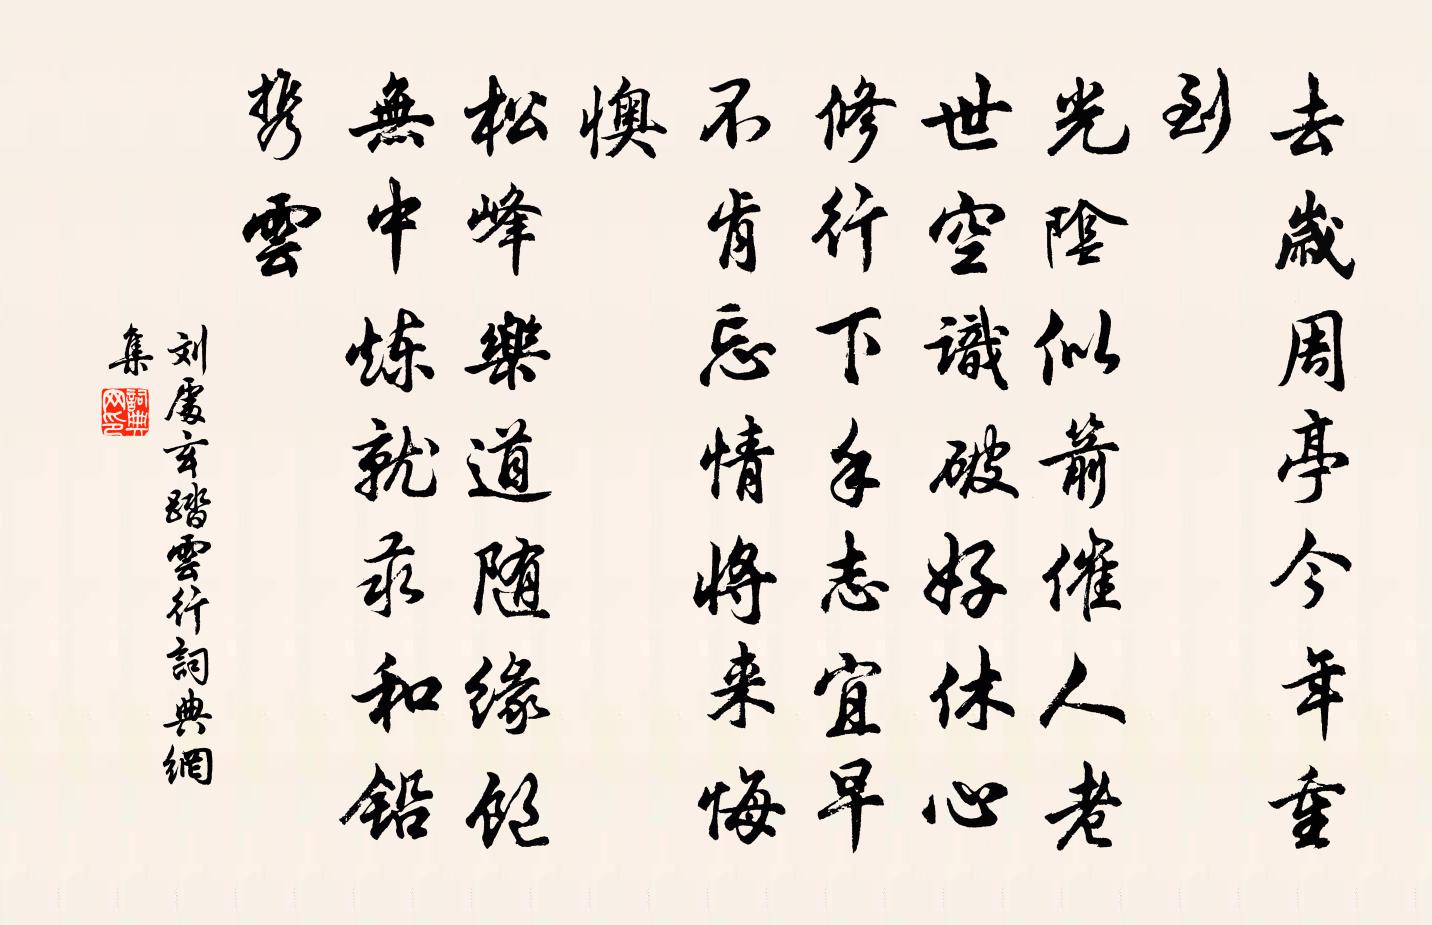 去歲周亭今年重
到
光陰似箭催人老
世空識破好休心
修行下手志宜早
不肯忘情將来悔
懊
松峰樂道随缘飽
無中炼就汞和鉛
携雲
刘處玄踏雲行詞典網
集
詞典网印